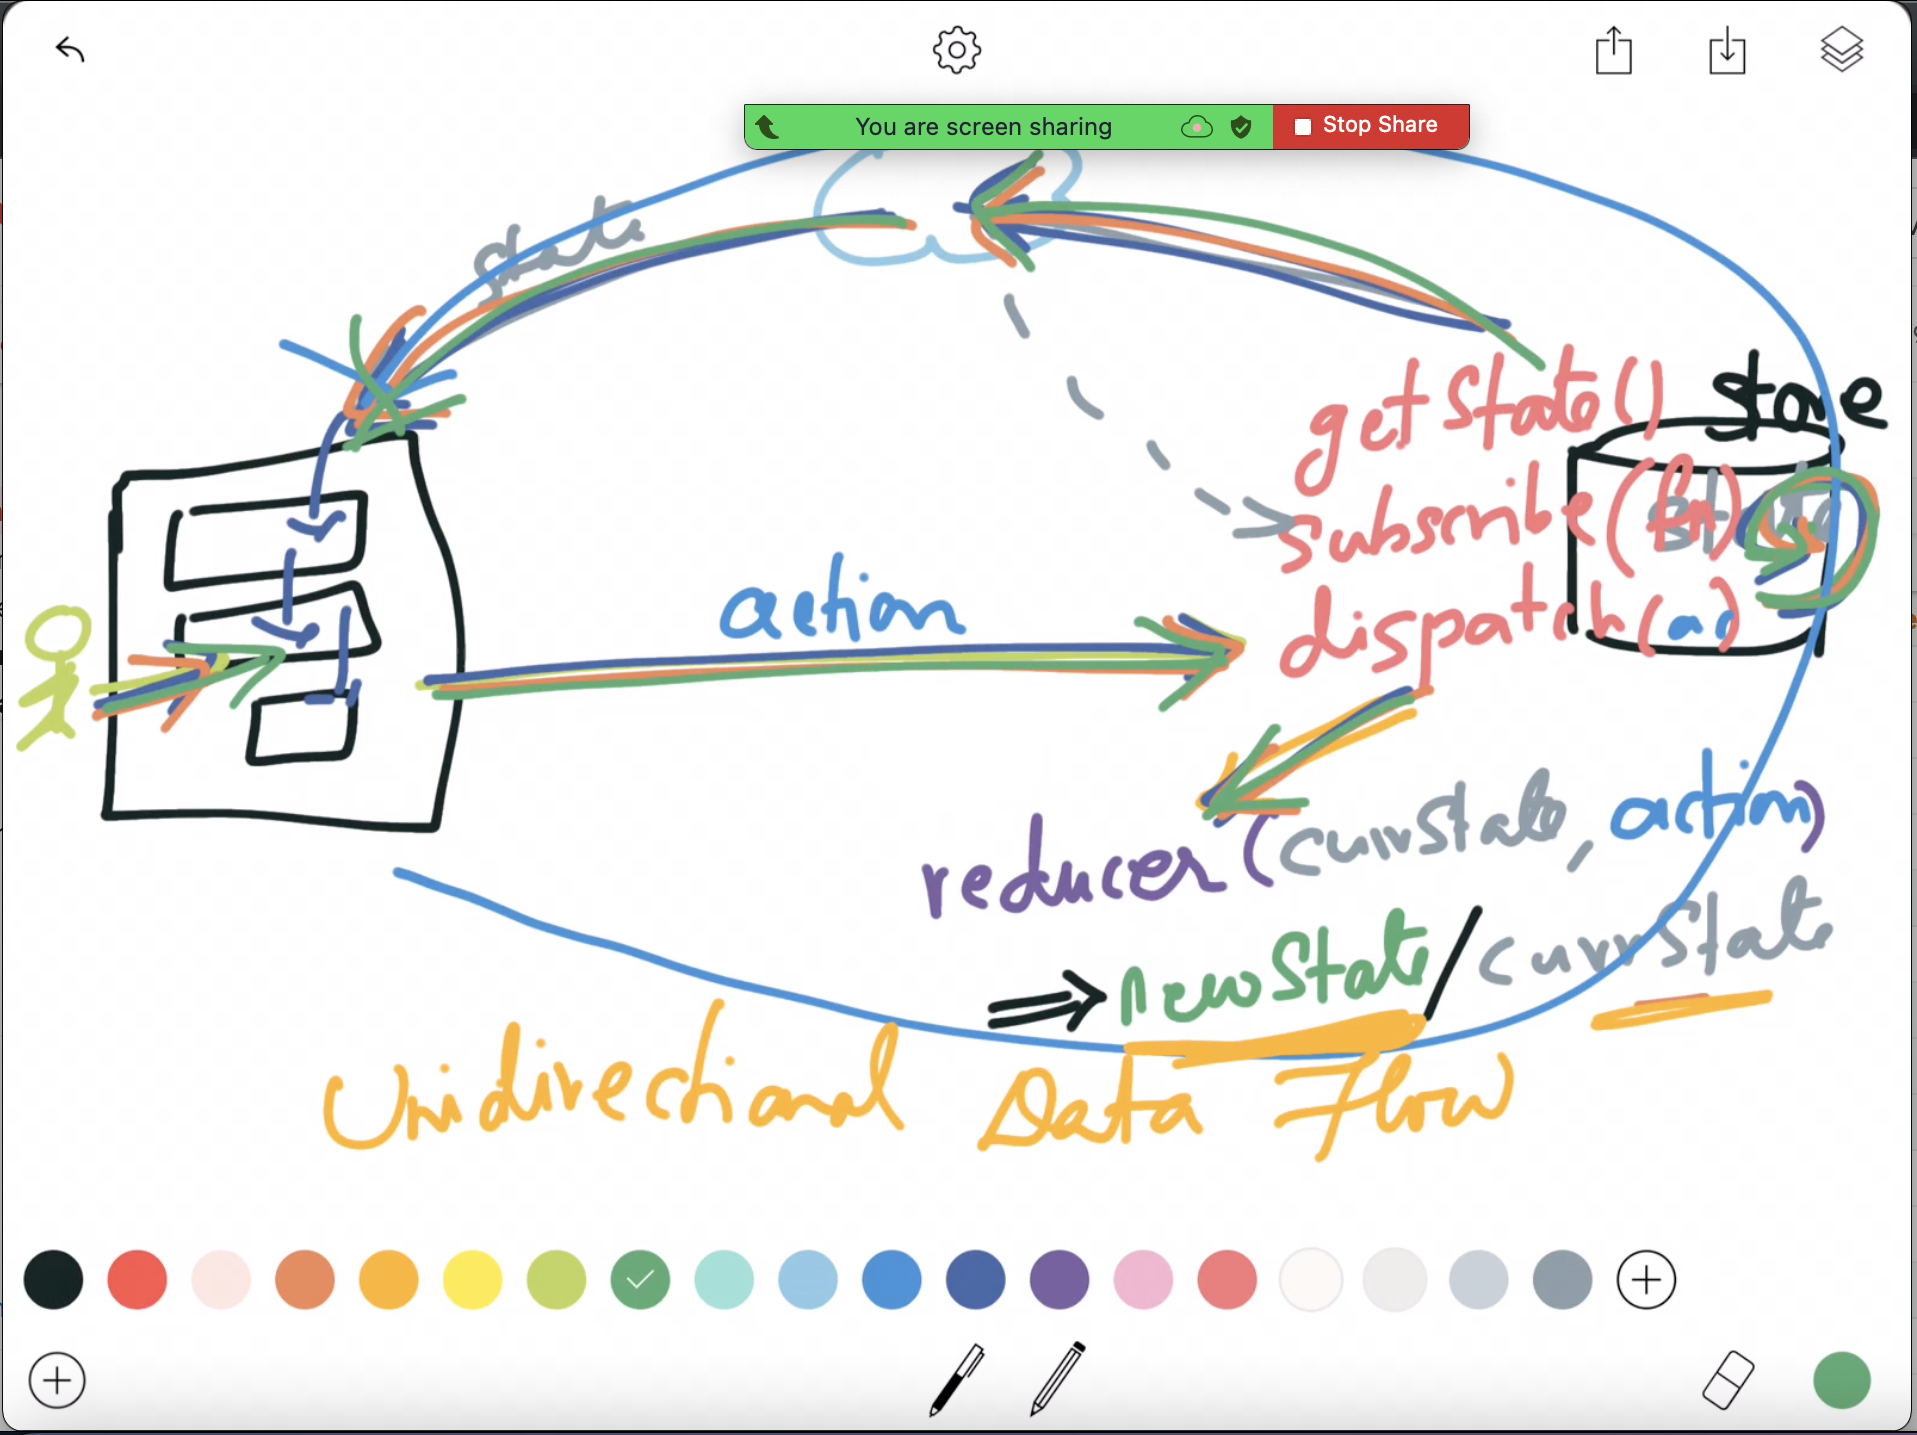 You are screen sharing
Stop Share
state
store
getState()
state
subscribe(fn)
action
dispatch(ac)
reducer(currState, action)
⇒ newState/currState
Unidirectional Data Flow